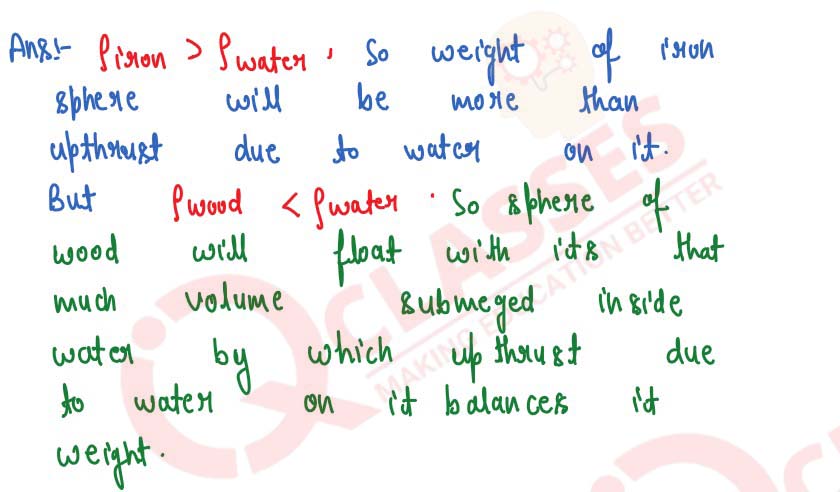 Ans:- ρiron > ρwater . So weight of iron
sphere will be more than
upthrust due to water on it.
But ρwood < ρwater . So sphere of
wood will float with its that
much volume submeged inside
water by which upthrust due
to water on it balances it
weight.
CLASSES
MAKING EDUCATION BETTER